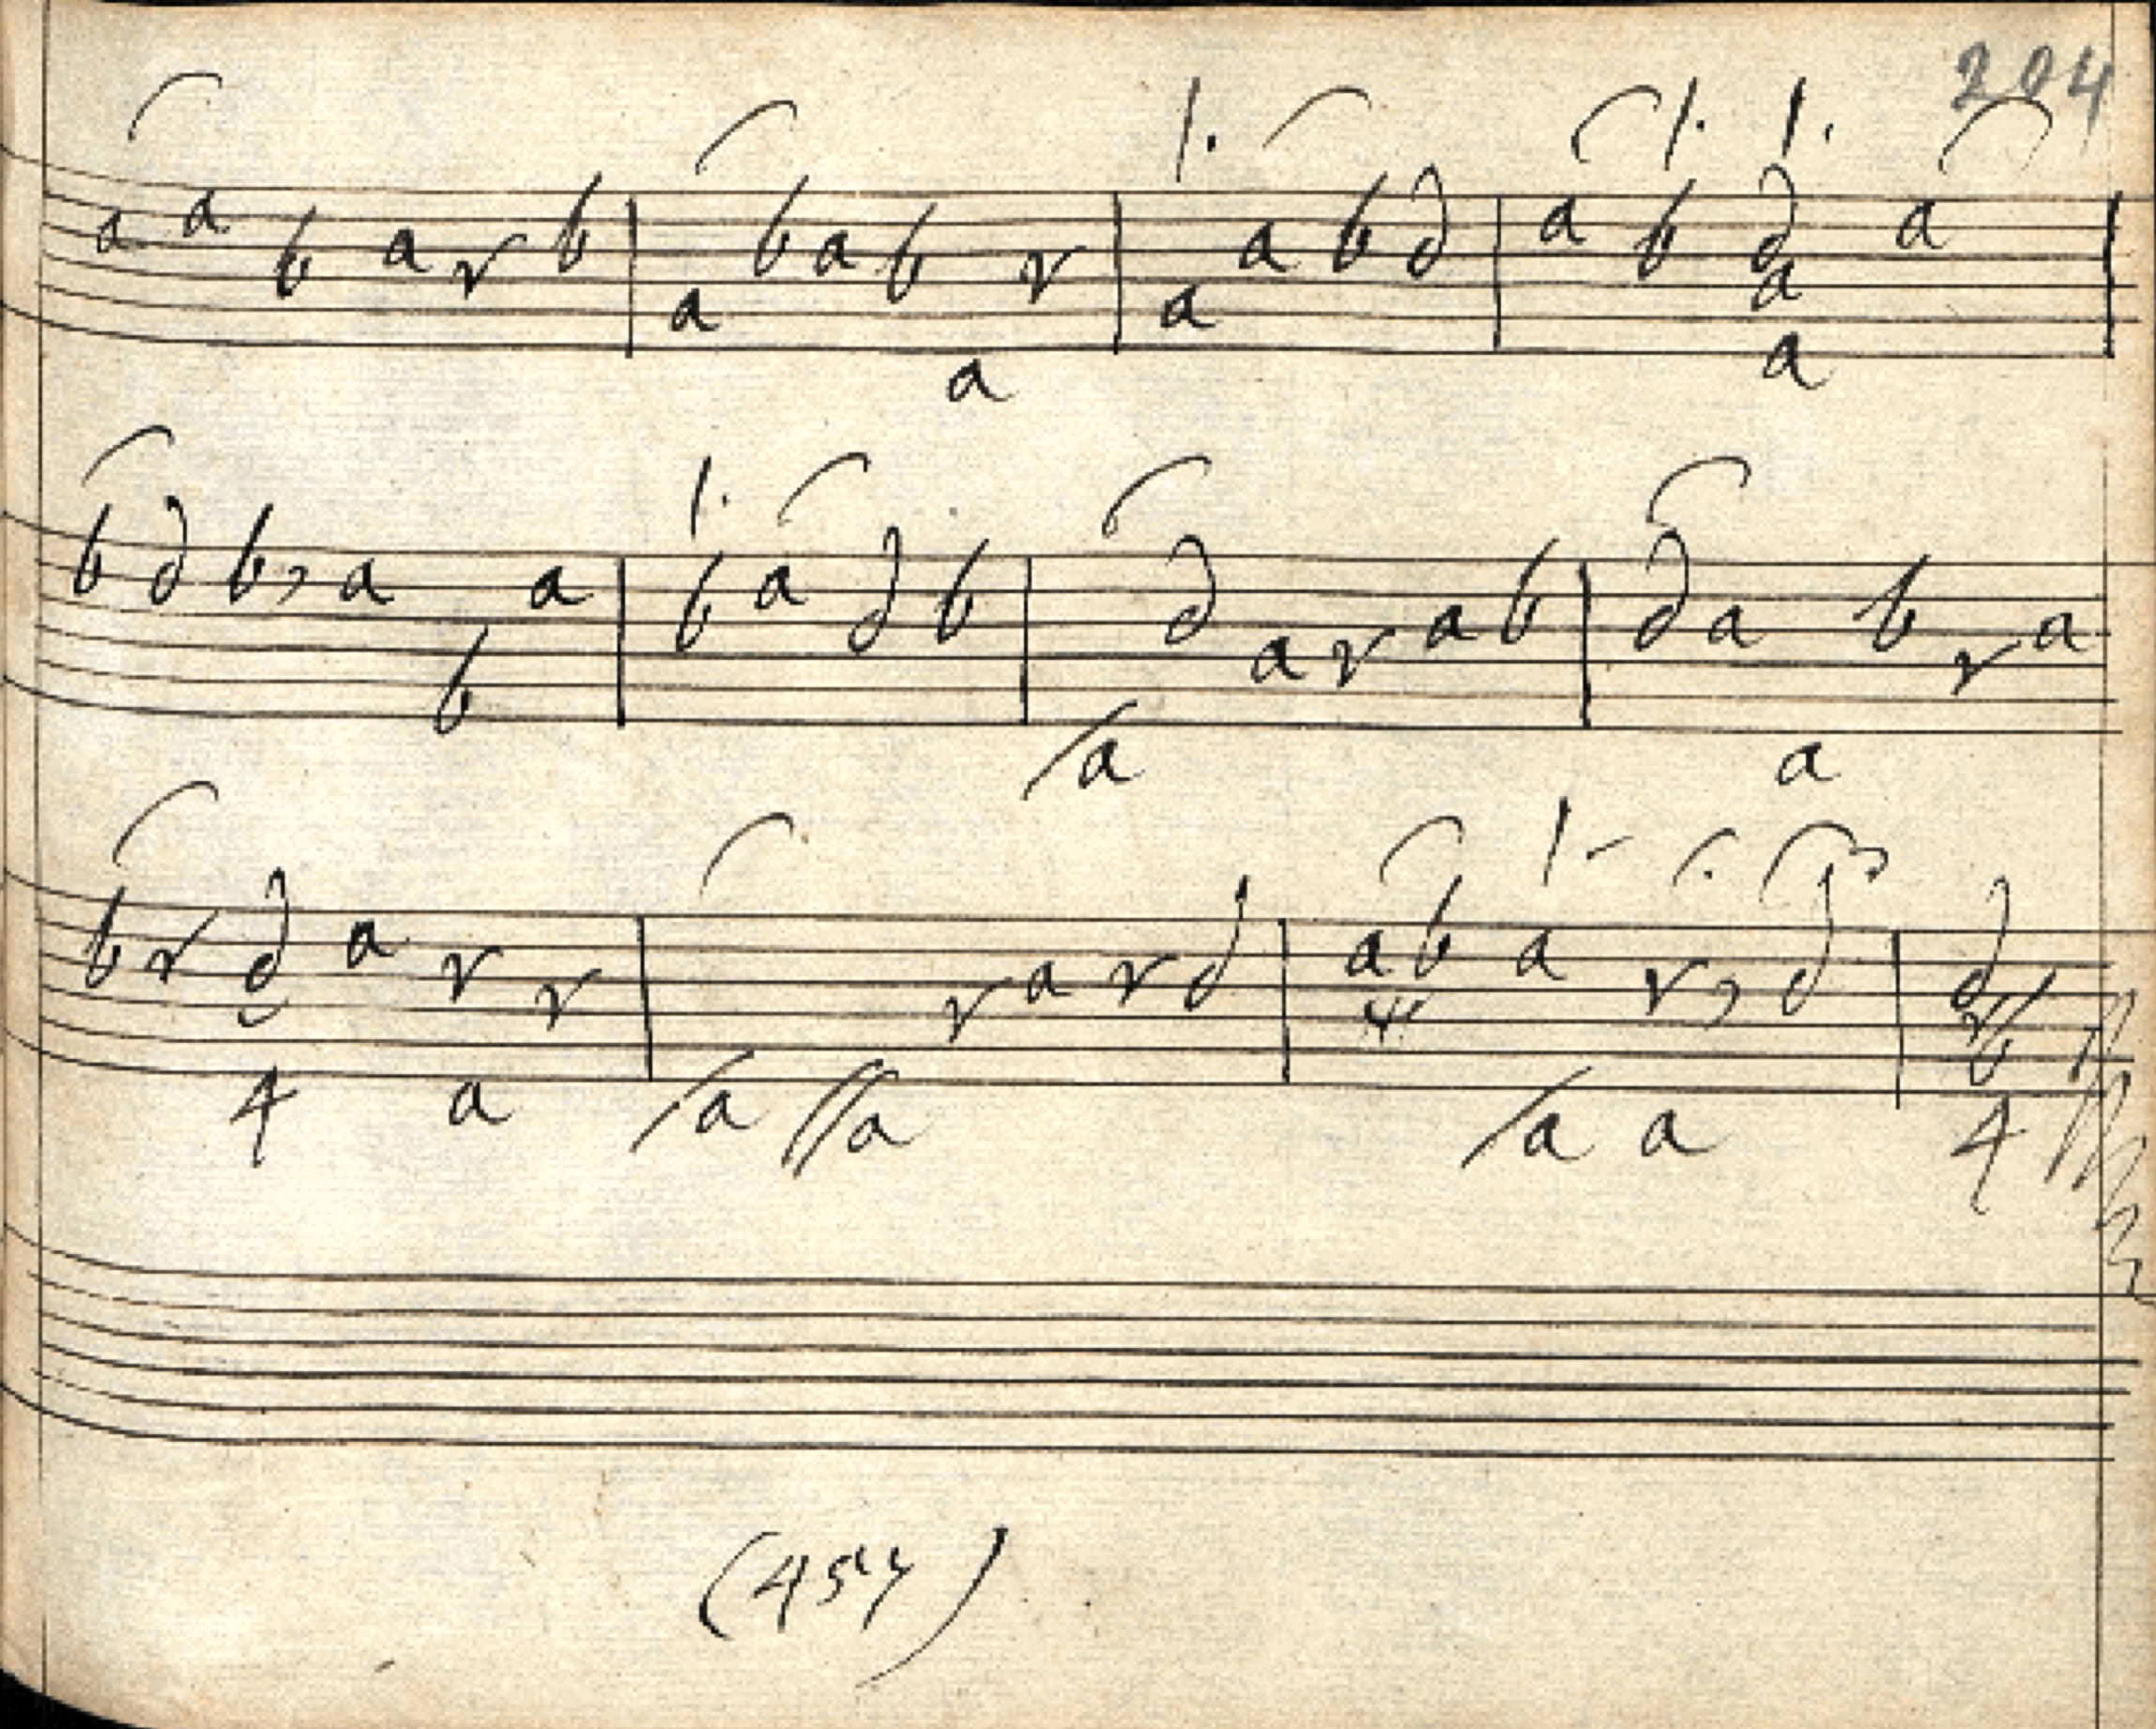 204
a a b a r b a b a b a r a a b d a b d a a a
b d b, a b a b a d b a d a r a b d a a b r a
b r d a r r 4 a a a r a r d a b a r, d a a d r b 4
(454)